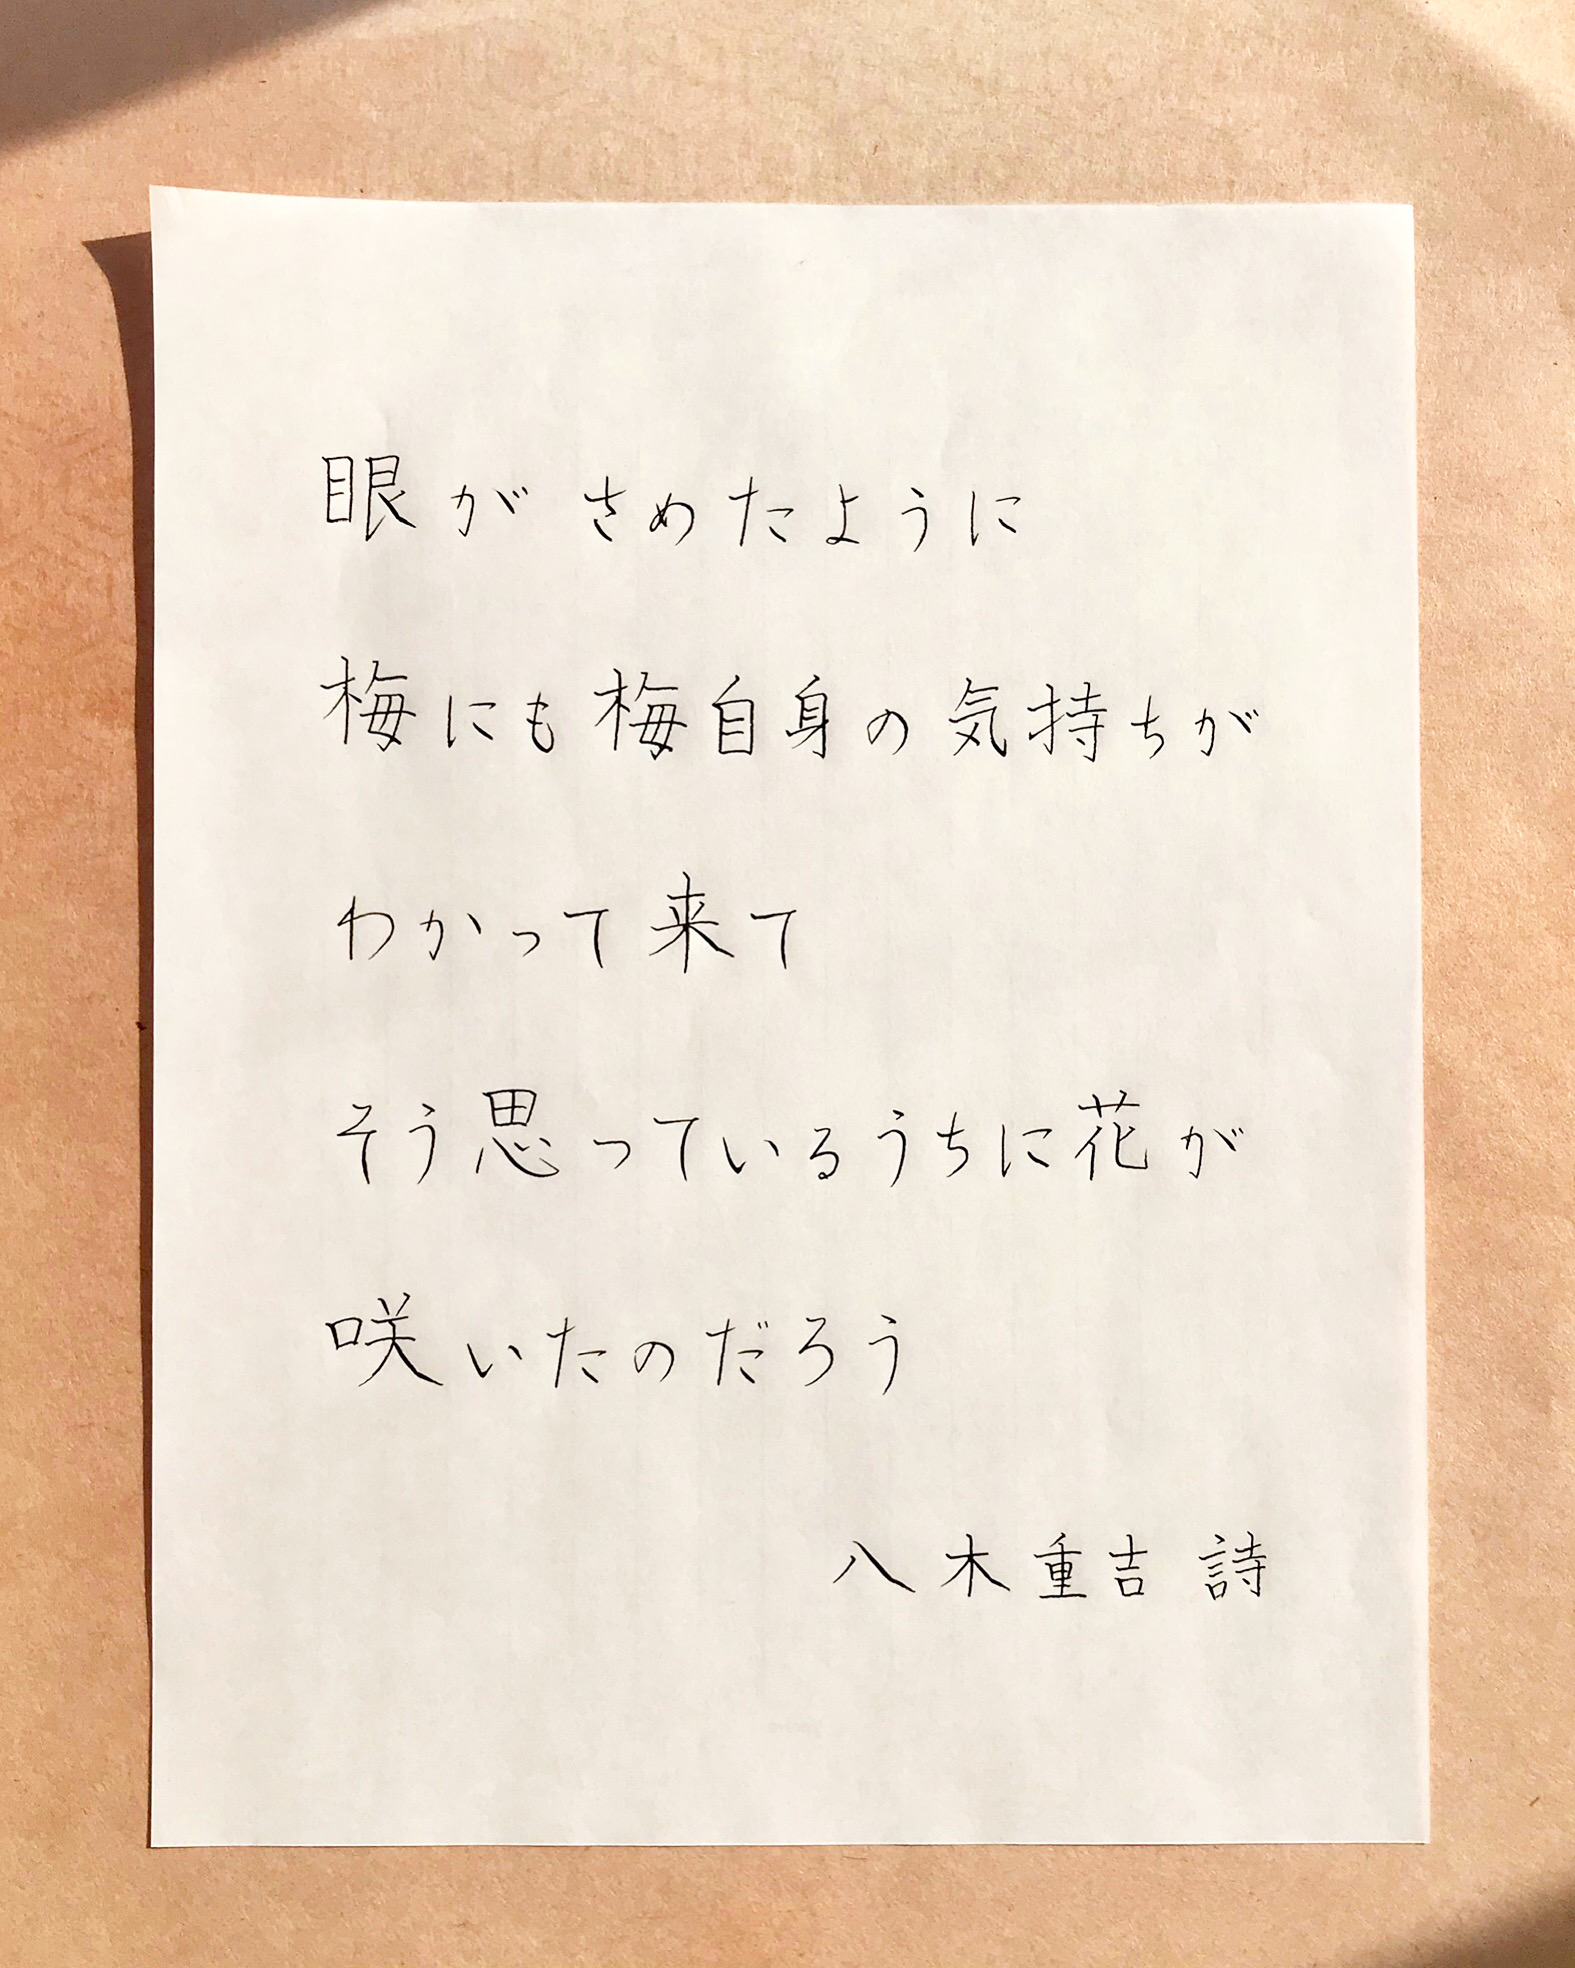 眼がさめたように
梅にも梅自身の気持ちが
わかって来て
そう思っているうちに花が
咲いたのだろう
八木重吉 詩